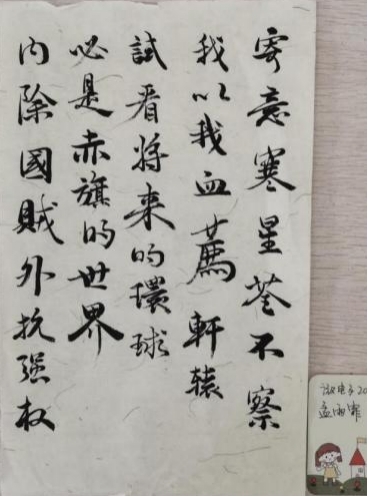 寄意寒星荃不察
我以我血薦軒辕
試看将来的環球
必是赤旗的世界
内除國賊外抗强权
孟雨霏